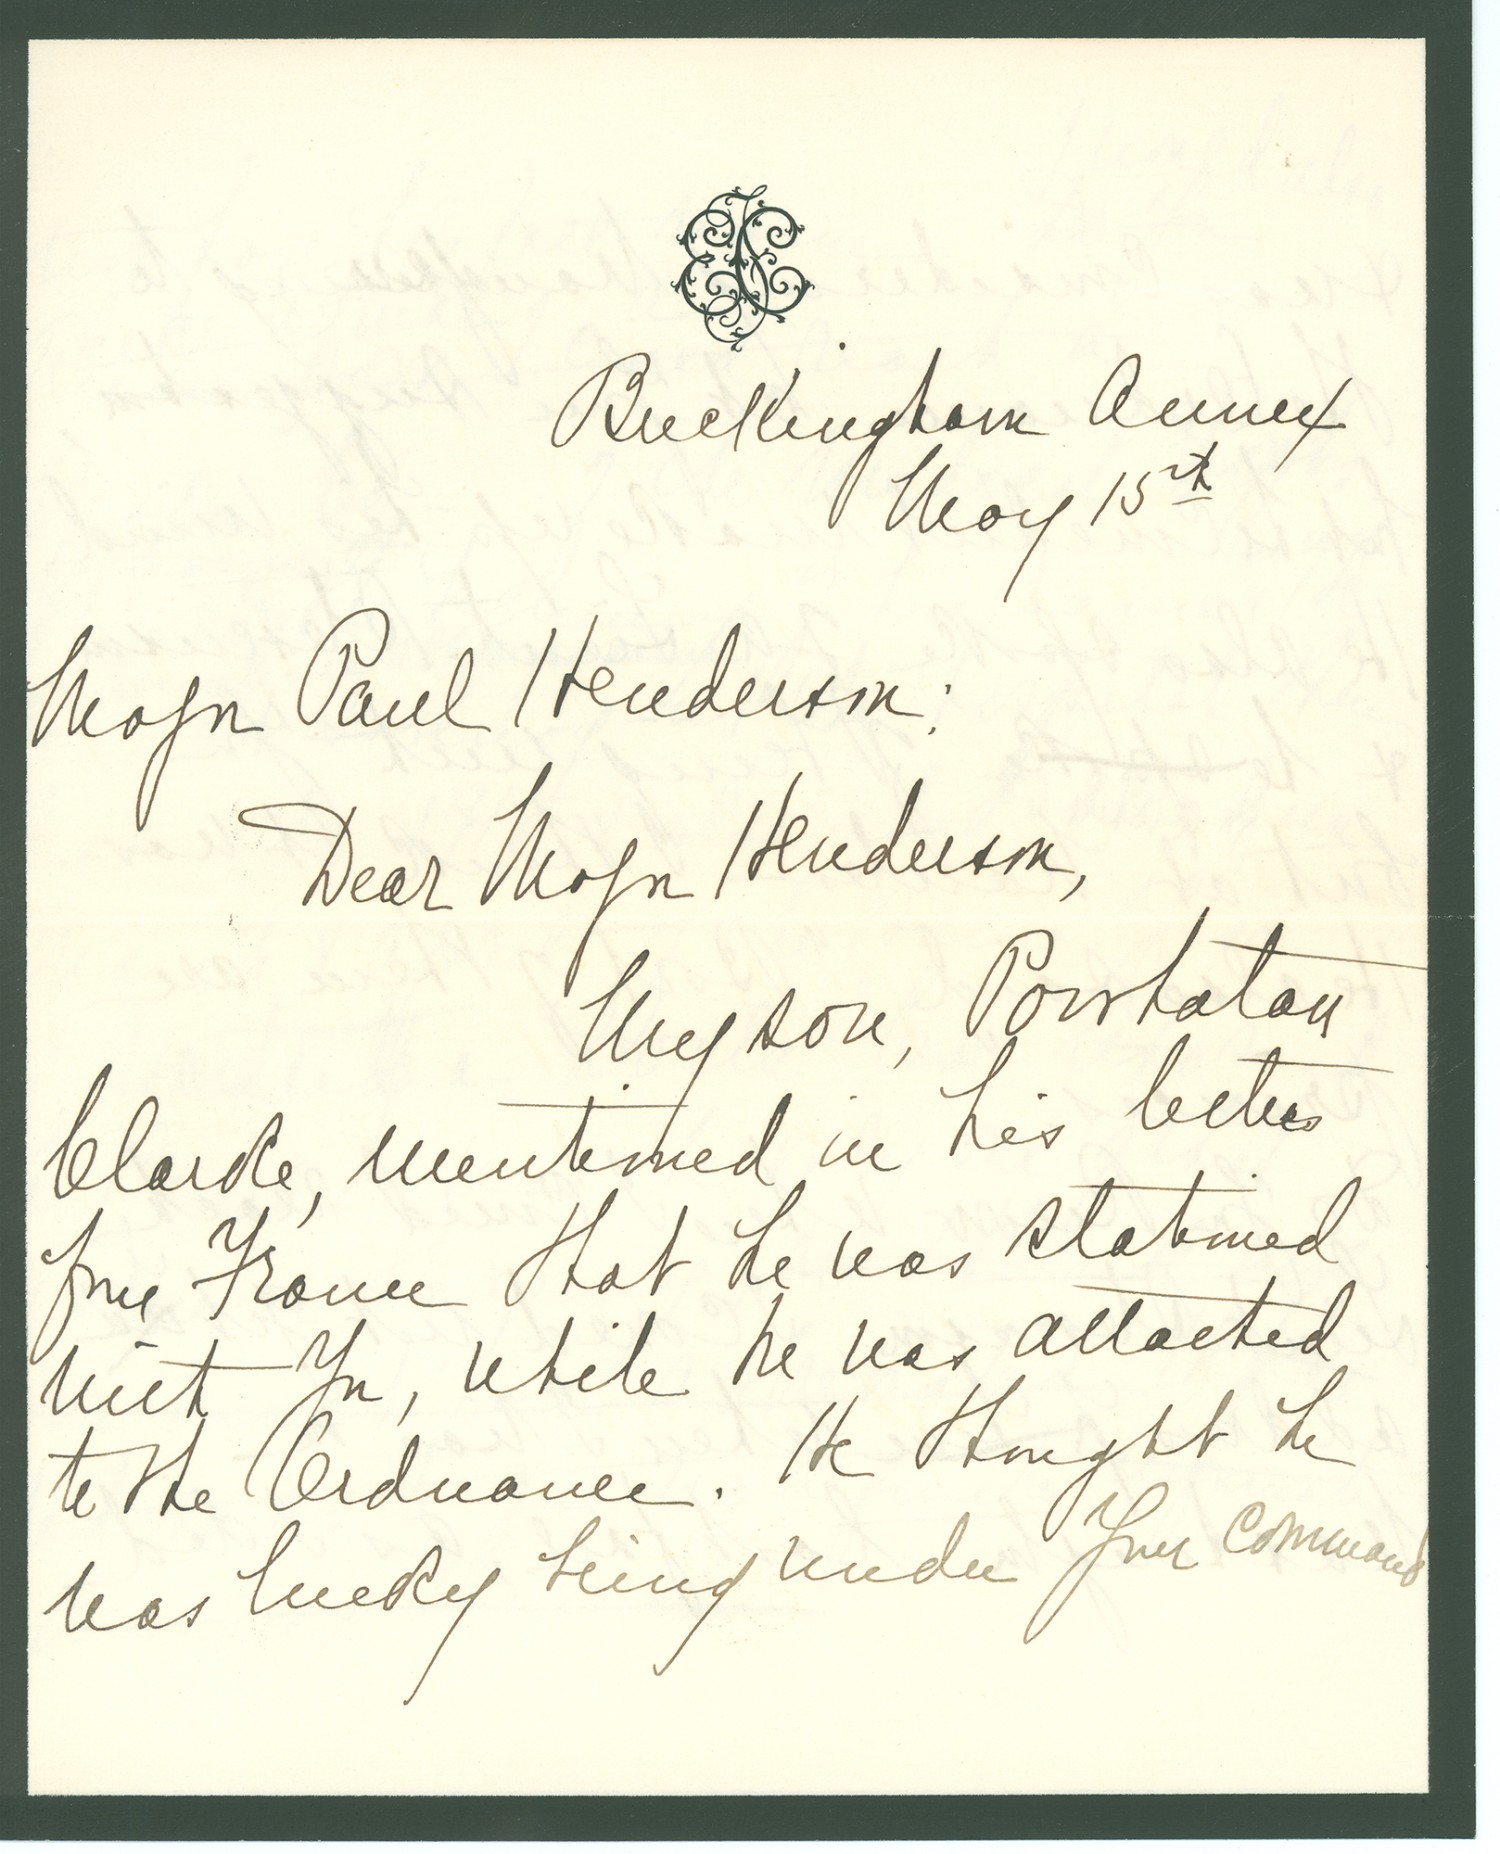 Buckingham Annex
May 15th
Major Paul Henderson:
Dear Major Henderson,
My son, Powhatan
Clarke, mentioned in his letters
from France that he was stationed
with you, while he was attached
to the Ordnance. He thought he
was lucky being under your command